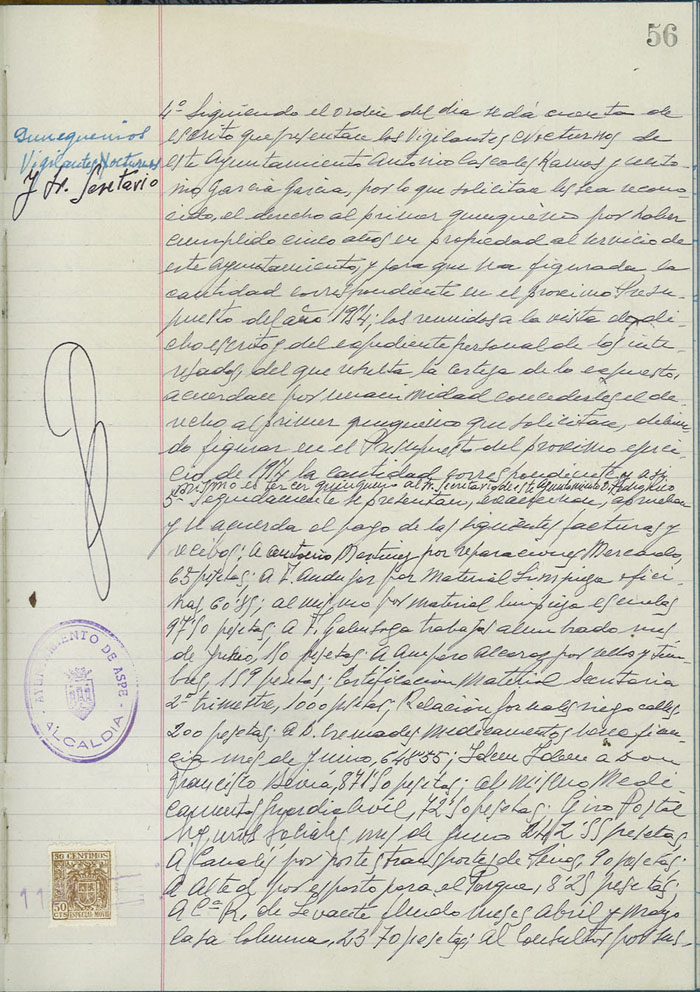 56
Quinquenios
Vigilantes Nocturnos
y Sr. Secretario
4º Siguiendo el orden del dia se dá cuenta de
escrito que presentan los Vigilantes Nocturnos de
este Ayuntamiento Antonio Pascales Ramos y Anto-
nio Garcia Garcia, por lo que solicitan les sea recono-
cido, el derecho al primer quinquenio por haber
cumplido cinco años en propiedad al servicio de
este Ayuntamiento, y para que sea figurada la
cantidad correspondiente en el proximo Presu-
puesto del año 1954; los reunidos a la vista de di-
cho escrito y del expediente personal de los inte-
resados del que resulta la certeza de lo expuesto,
acuerdan por unanimidad concederles el de-
recho al primer quinquenio que solicitan, debien-
do figurar en el Presupuesto del proximo ejerci-
cio de 1954 la cantidad correspondiente y asi
mismo el tercer quinquenio al Sr. Secretario de este Ayuntamiento
5º Seguidamente se presentan, examinan, aprueban
y se acuerda el pago de las siguientes facturas y
recibos; A Antonio Martinez por reparaciones Mercado,
65 pesetas; A F. Andujar por Material Limpieza ofici-
nas 60'85; al mismo por material limpieza escuelas
97'50 pesetas, A F. Galinsoga trabajos alumbrado mes
de Junio, 150 pesetas; A Amparo Alcaraz por sellos y tim-
bres, 159 pesetas; Certificacion Material Sanitario
2º trimestre, 1000 pesetas; Relación jornales riego calles
200 pesetas; a D. Cremades medicamentos benefien-
cia mes de Junio, 648'55; Idem Idem a Don
Francisco Beviá, 871'50 pesetas; al mismo Medi-
camentos Guardia Civil, 72'50 pesetas; Giro Postal
Seguros Sociales mes de Junio 242'55 pesetas,
A Canales por portes transportes de Pinos, 90 pesetas;
A Asted por esparto para el Parque, 8'25 pesetas;
A Cª R. de Levante fluido meses Abril y Mayo
casa Columna, 23'70 pesetas; Al Consultor por sus-
AYUNTAMIENTO DE ASPE
ALCALDIA
30 CENTIMOS
50 CTS
ESPECIAL MOVIL